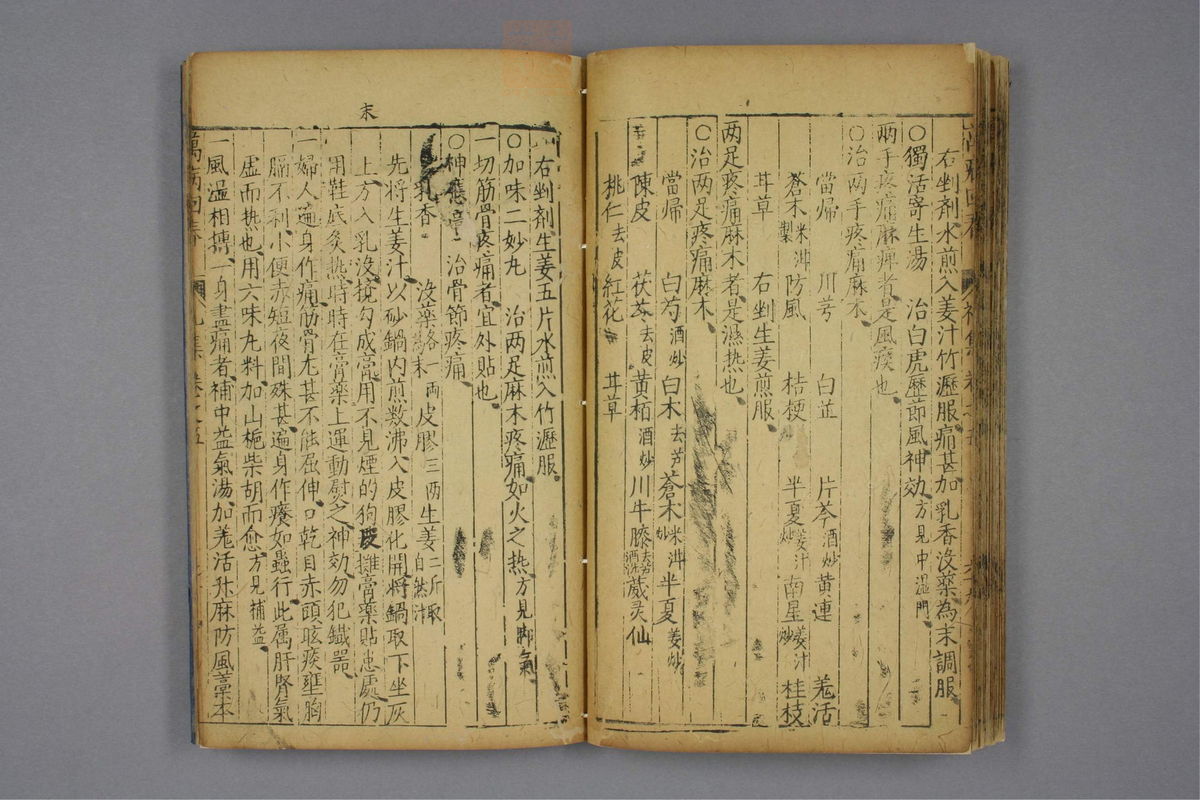 右剉剤水煎入姜汁竹瀝服痛甚加乳香沒藥為末調服
○獨活寄生湯　治白虎歷節風神効方見中濕門
兩手疼痛麻痺者是風痰也
○治兩手疼痛麻木
當帰　川芎　白芷　片芩酒炒　黄連　羗活
蒼术米泔製　防風　桔梗　半夏姜汁炒　南星姜汁炒　桂枝
甘草　右剉生姜煎服
两足疼痛麻木者是濕热也
○治两足疼痛麻木
當帰　白芍酒炒　白术去芦　蒼术米泔炒　半夏姜炒
陳皮　茯苓去皮　黄栢酒炒　川牛膝去芦酒洗　葳灵仙
桃仁去皮　紅花　甘草
右剉剤生姜五片水煎入竹瀝服
○加味二妙丸　治两足麻木疼痛如火之热方見脚氣
一切筋骨疼痛者宜外貼也
○神應膏　治骨節疼痛
乳香　沒藥各一両　皮膠三两　生姜二斤取自然汁
末
先将生姜汁以砂鍋内煎数沸入皮膠化開将鍋取下坐灰
上方入乳沒攪匀成膏用不見煙的狗皮攤膏藥貼患處仍
用鞋底灸热時時在膏藥上運動熨之神効勿犯鐵器
一婦人遍身作痛筋骨尤甚不能屈伸口乾目赤頭眩痰壅胸
膈不利小便赤短夜間殊甚遍身作癢如蟲行此属肝腎氣
虚而热也用六味丸料加山梔柴胡而愈方見補益
一風濕相摶一身盡痛者補中益氣湯加羗活升麻防風藁本
萬病回春